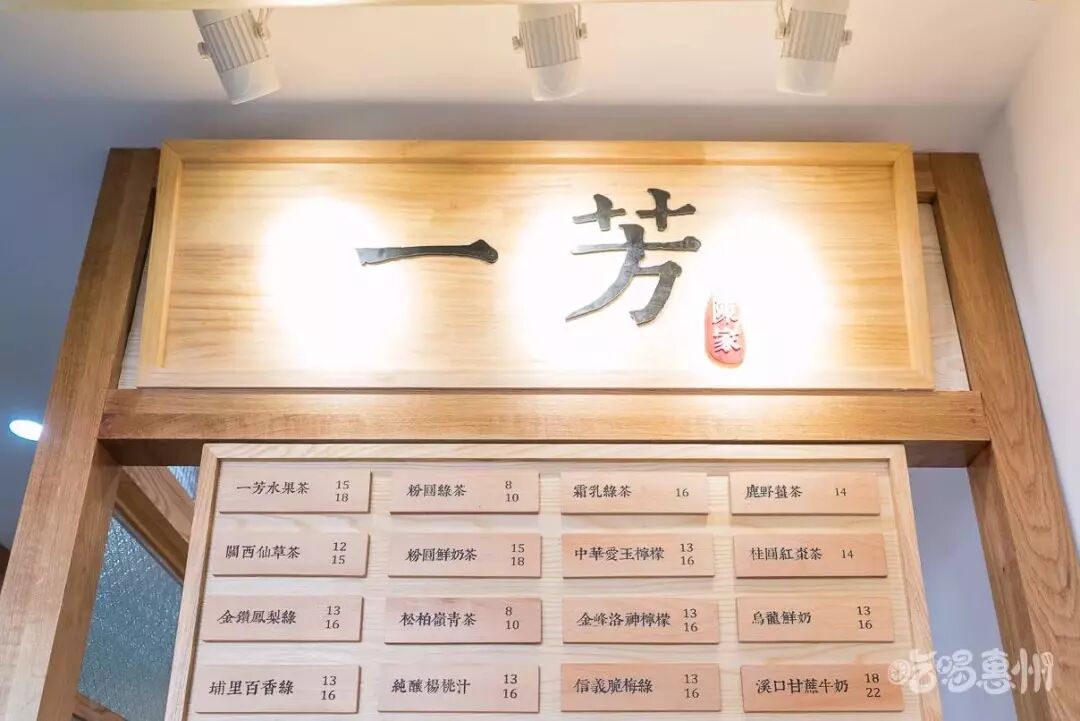 一芳
陳家
一芳水果茶 15 18
粉圓綠茶 8 10
霜乳綠茶 16
鹿野薑茶 14
關西仙草茶 12 15
粉圓鮮奶茶 15 18
中華愛玉檸檬 13 16
桂圓紅棗茶 14
金鑽鳳梨綠 13 16
松柏嶺青茶 8 10
金峰洛神檸檬 13 16
烏龍鮮奶 13 16
埔里百香綠 13 16
純釀楊桃汁 13 16
信義脆梅綠 13 16
溪口甘蔗牛奶 18 22
吃喝惠州